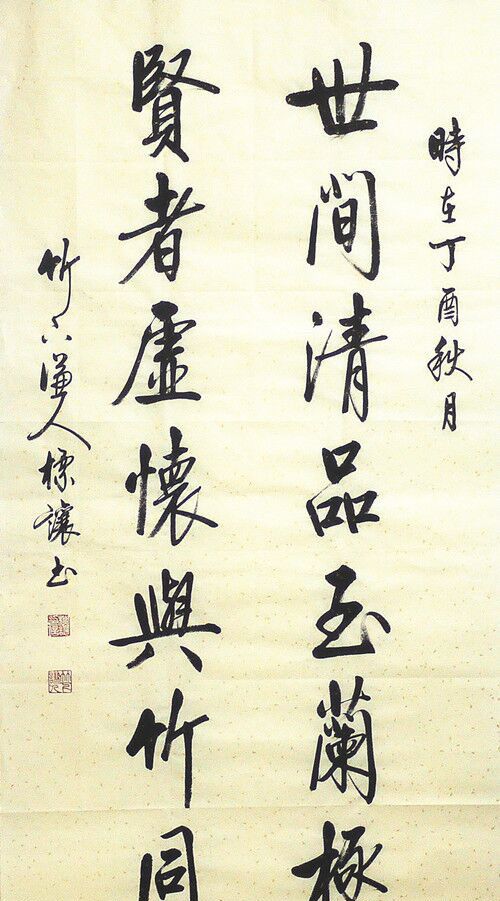 時在丁酉秋月
世間清品玉蘭極
賢者虛懷與竹同
竹下謙人標讓书